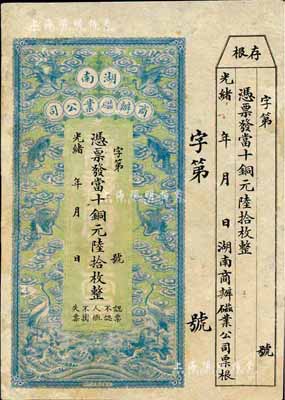 存根
字第 號
憑票發當十銅元陸拾枚整
光緒 年 月 日湖南商辦磁業公司票根
字第 號
湖南
商辦磁業公司
字第 號
憑票發當十銅元陸拾枚整
光緒 年 月 日
認票不認人
失票不掛